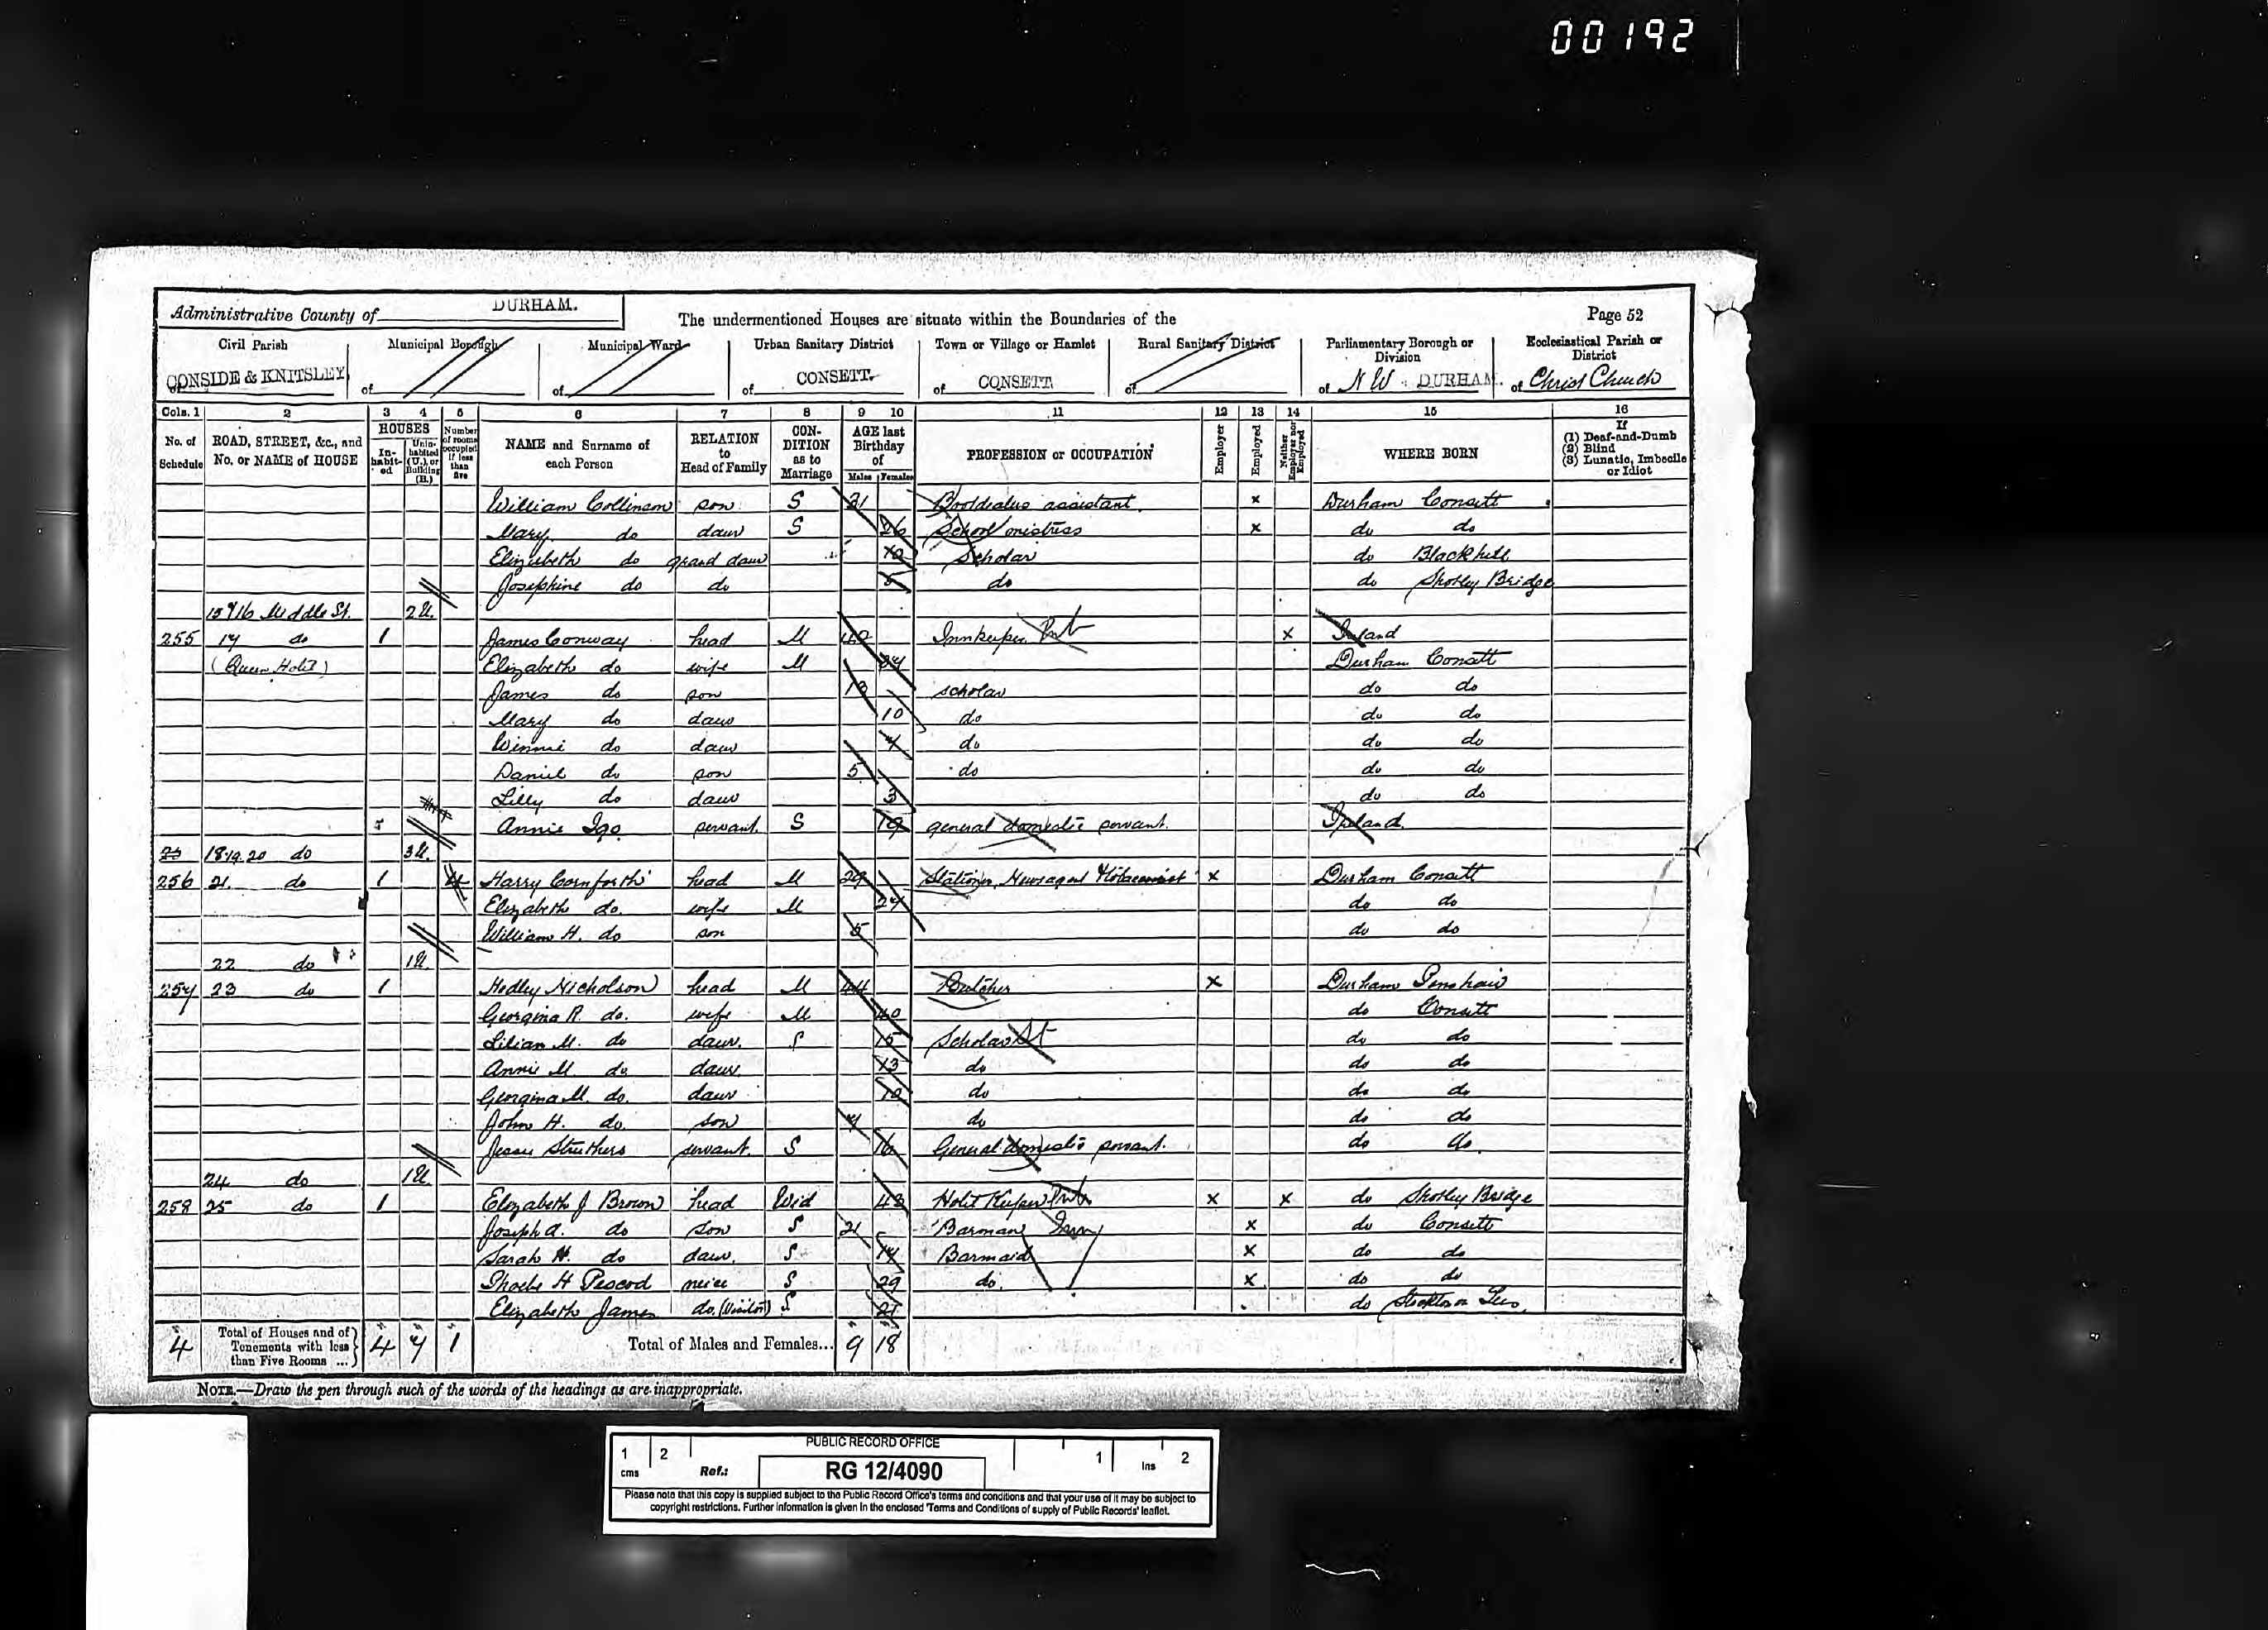 00192
Administrative County of DURHAM.
The undermentioned Houses are situate within the Boundaries of the
Page 52
Civil Parish Municipal Borough Municipal Ward Urban Sanitary District Town or Village or Hamlet Rural Sanitary District Parliamentary Borough or Division Ecclesiastical Parish or District
CONSIDE & KNITSLEY of of of CONSETT. of CONSETT of of N W. DURHAM. of Christ Church
Cols. 1 2 3 4 5 6 7 8 9 10 11 12 13 14 15 16
No. of Schedule ROAD, STREET, &c., and No. or NAME of HOUSE HOUSES In-habit-ed Unin-habited (U.), or Building (B.) Number of rooms occupied if less than five NAME and Surname of each Person RELATION to Head of Family CON-DITION as to Marriage AGE last Birthday of Males Females PROFESSION or OCCUPATION Employer Employed Neither Employer nor Employed WHERE BORN If (1) Deaf-and-Dumb (2) Blind (3) Lunatic, Imbecile or Idiot
William Collinson son S 31 assistant x Durham Consett
Mary do daur S 26 School mistress x do do
Elizabeth do grand daur 10 Scholar do Blackhill
Josephine do do 5 do do Shotley Bridge
15 & 16 Middle St. 2U.
255 17 do 1 James Conway head M 42 Innkeeper x Ireland
(Queen Hotel) Elizabeth do wife M 34 Durham Consett
James do son 13 scholar do do
Mary do daur 10 do do do
Winnie do daur 7 do do do
Daniel do son 5 do do do
Lilly do daur 3 do do
Annie Igo servant. S 19 general domestic servant. Ireland.
18.19.20 do 3U.
256 21. do 1 4 Harry Cornforth head M 29 Stationer, Newsagent & tobacconist x Durham Consett
Elizabeth do. wife M 24 do do
William H. do son 5 do do
22 do 1U.
257 23 do 1 Hedley Nicholson head M 44 Butcher x Durham Penshaw
Georgina R. do. wife M 40 do Consett
Lilian M. do daur. S 15 Scholar do do
Annie M. do daur. 13 do do do
Georgina M. do. daur 10 do do do
John H. do. son 7 do do do
Jessie Struthers servant. S 16 General domestic servant. do do.
24 do 1U
258 25 do 1 Elizabeth J Brown head Wid 43 Hotel Keeper x x do Shotley Bridge
Joseph A. do son S 21 Barman x do Consett
Sarah H. do daur. S 17 Barmaid x do do
Phoebe H Pescod neice S 29 do. x do do
Elizabeth James do. (Visitor) S 21 do Stockton on Tees.
4 Total of Houses and of Tenements with less than Five Rooms ... 4 7 1 Total of Males and Females... 9 18
NOTE.—Draw the pen through such of the words of the headings as are inappropriate.
1 2 PUBLIC RECORD OFFICE 1 2
cms Ref.: RG 12/4090 Ins
Please note that this copy is supplied subject to the Public Record Office's terms and conditions and that your use of it may be subject to
copyright restrictions. Further information is given in the enclosed 'Terms and Conditions of supply of Public Records' leaflet.